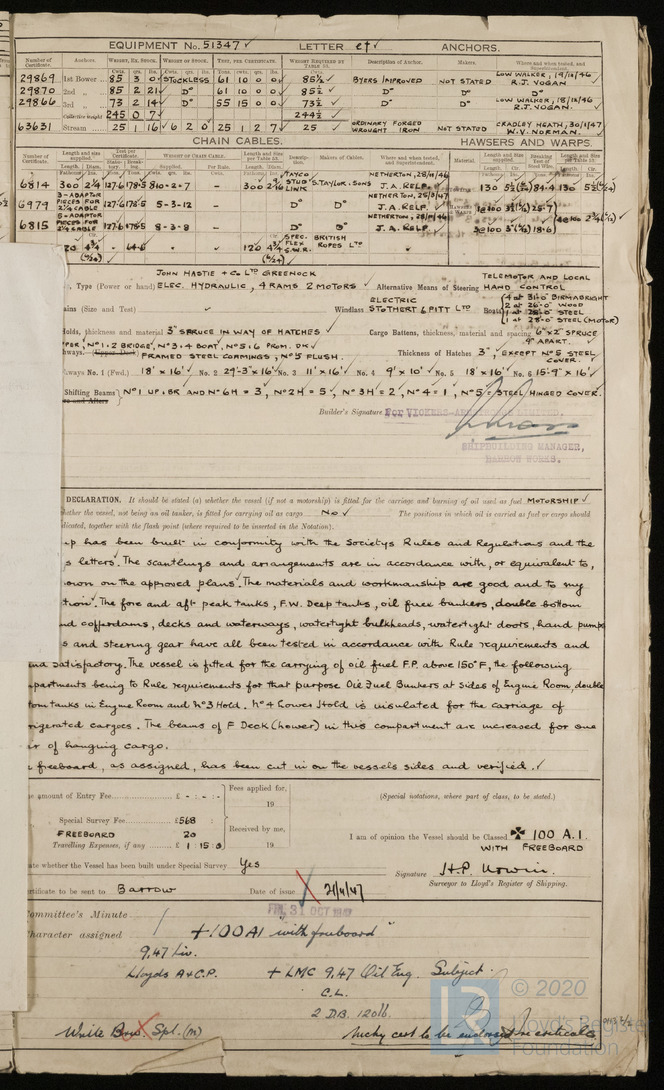 EQUIPMENT No. 51347 ✓ LETTER et ✓ ANCHORS.
Number of Certificate. Anchors. WEIGHT, EX. STOCK. WEIGHT OF STOCK. TEST, PER CERTIFICATE. WEIGHT REQUIRED BY TABLE 53. Description of Anchor. Makers. Where and when tested, and Superintendent.
29869 1st Bower 85 3 0 STOCKLESS 61 10 0 0 85½ BYERS IMPROVED NOT STATED LOW WALKER, 19/12/46 R.J. VOGAN.
29870 2nd „ 85 2 21 Dº 61 10 0 0 85½ Dº Dº Dº
29866 3rd „ 73 2 14 Dº 55 15 0 0 73½ Dº Dº LOW WALKER, 18/12/46 R.J. VOGAN.
Collective weight 245 0 7 244½
63631 Stream 25 1 16 6 2 0 25 1 2 7 25 ORDINARY FORGED WROUGHT IRON NOT STATED CRADLEY HEATH, 30/1/47 W.V. NORMAN.
CHAIN CABLES. HAWSERS AND WARPS.
6814 300 2¼ 127·6 178·5 810-2-7 – 300 2¼ TAYCO STUD LINK S. TAYLOR & SONS NETHERTON, 28/11/46 J.A. RELF. 130 84·4 130
6979 3-ADAPTOR PIECES FOR 2¼ CABLE 127·6 178·5 5-3-12 – Dº Dº NETHERTON, 25/3/47 J.A. RELF 25·7
6815 6-ADAPTOR PIECES FOR 2¼ CABLE 127·6 178·5 8-3-8 – Dº Dº NETHERTON, 28/11/46 J.A. RELF 18·6
64·6 – 120 4¾ SPEC. FLEX S.W.R. BRITISH ROPES LTD
JOHN HASTIE + Co LTD GREENOCK
Type (Power or hand) ELEC. HYDRAULIC, 4 RAMS 2 MOTORS ✓ Alternative Means of Steering TELEMOTOR AND LOCAL HAND CONTROL
(Size and Test) ✓ Windlass ELECTRIC STOTHERT & PITT LTD Boats 4 at 31·0' BIRMABRIGHT
2 at 26·0' WOOD
1 at 28·0' STEEL
1 at 28·0' STEEL (MOTOR)
Holds, thickness and material 3" SPRUCE IN WAY OF HATCHES ✓ Cargo Battens, thickness, material and spacing 6" x 2" SPRUCE 9" APART. ✓
Nº 1·2 BRIDGE, Nº 3·4 BOAT, Nº 5·6 PROM. DK
(Upper Deck) FRAMED STEEL COAMINGS, Nº 5 FLUSH. Thickness of Hatches 3", EXCEPT Nº 5 STEEL COVER. ✓
No. 1 (Fwd.) 18' x 16' No. 2 29'·3" x 16' No. 3 11' x 16' No. 4 9' x 10' No. 5 18' x 16' No. 6 15'·9" x 16'
Shifting Beams Nº 1 UP: BR AND Nº 6 H = 3, Nº 2 H = 5, Nº 3 H = 2, Nº 4 = 1, Nº 5 = STEEL HINGED COVER.
Builder's Signature For VICKERS-ARMSTRONGS LIMITED.
SHIPBUILDING MANAGER,
BARROW WORKS.
DECLARATION. It should be stated (a) whether the vessel (if not a motorship) is fitted for the carriage and burning of oil used as fuel MOTORSHIP ✓
the vessel, not being an oil tanker, is fitted for carrying oil as cargo NO ✓ The positions in which oil is carried as fuel or cargo should
together with the flash point (where required to be inserted in the Notation).
has been built in conformity with the Societys Rules and Regulations and the
letters. The scantlings and arrangements are in accordance with, or equivalent to,
on the approved plans. The materials and workmanship are good and to my
The fore and aft peak tanks, F.W. Deep tanks, oil fuel bunkers, double bottom
cofferdams, decks and waterways, watertight bulkheads, watertight doors, hand pumps
and steering gear have all been tested in accordance with Rule requirements and
satisfactory. The vessel is fitted for the carrying of oil fuel F.P. above 150°F, the following
being to Rule requirements for that purpose Oil Fuel Bunkers at sides of Engine Room, double
tanks in Engine Room and Nº 3 Hold. Nº 4 Lower Hold is insulated for the carriage of
cargoes. The beams of F Deck (Lower) in this compartment are increased for one
of hanging cargo.
freeboard, as assigned, has been cut in on the vessels sides and verified. ✓
amount of Entry Fee £ - : - : - Fees applied for, 19 (Special notations, where part of class, to be stated.)
Special Survey Fee £568
FREEBOARD 20 Received by me, I am of opinion the Vessel should be Classed ✠ 100 A.1.
Travelling Expenses, if any £ 1 15 0 19 WITH FREEBOARD
whether the Vessel has been built under Special Survey Yes Signature H.P. Urwin.
Surveyor to Lloyd's Register of Shipping.
to be sent to Barrow Date of issue 21/11/47
Committee's Minute FRI. 31 OCT 1947
Character assigned +100A1 "with freeboard"
9,47 Liv.
Lloyds A & C.P. + LMC 9,47 Oil Eng. Subject
C.L.
2 D.B. 120 lb.
Write Spl. (M)
© 2020
LR Lloyd's Register Foundation